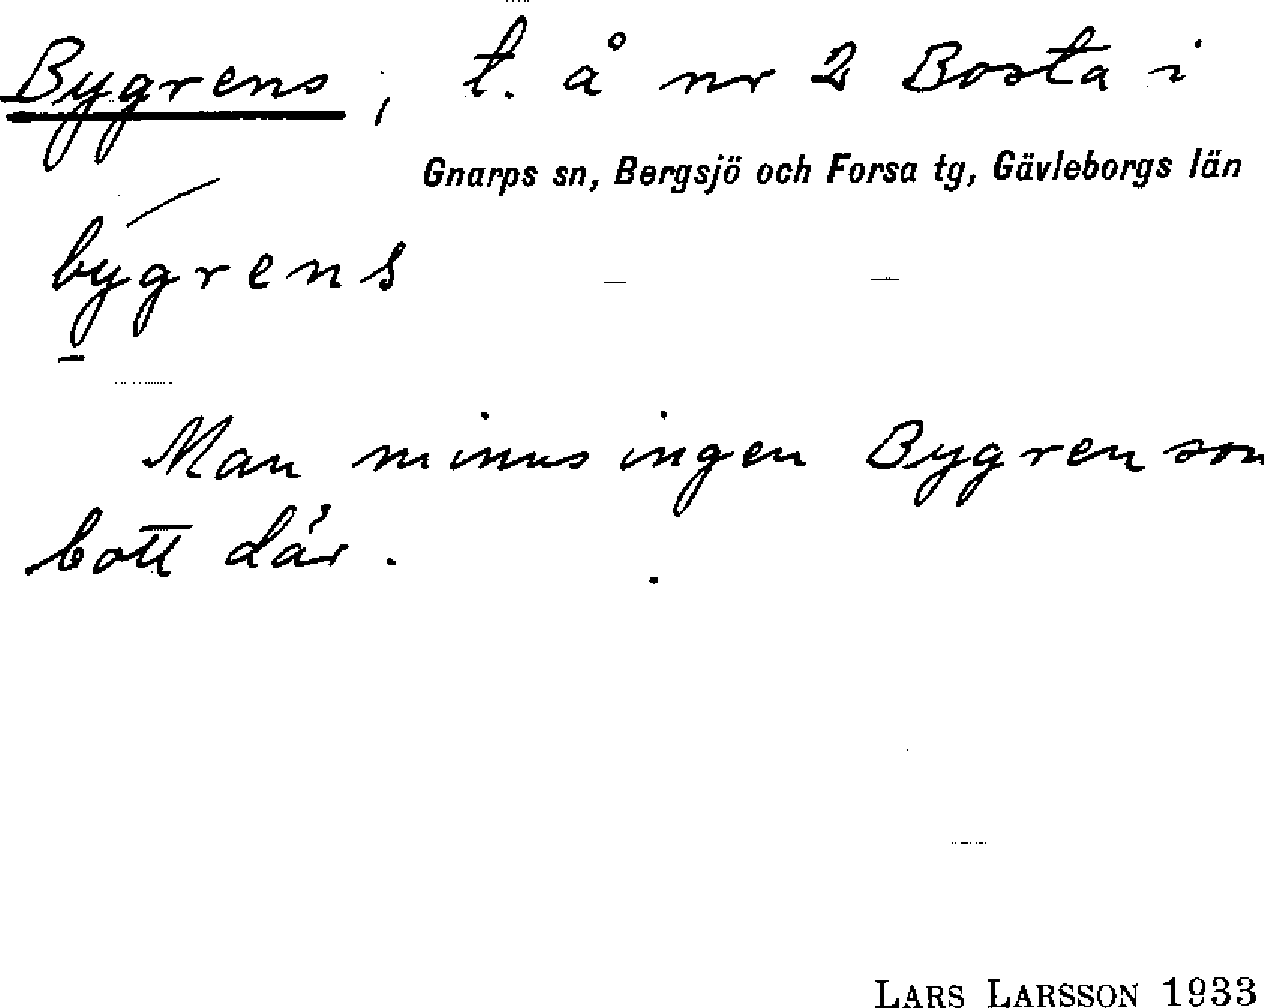 Bygrens, t. å nr 2 Bosta i
Gnarps sn, Bergsjö och Forsa tg, Gävleborgs län
bygrens
Man minns ingen Bygren som
bott där.
LARS LARSSON 1933